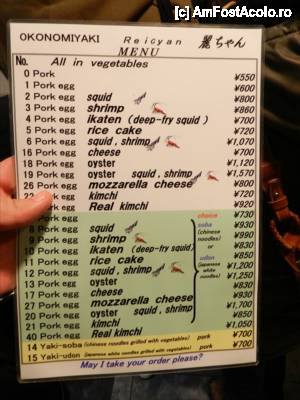 (c) AmFostAcolo.ro
OKONOMIYAKI Reicyan 麗ちゃん
MENU
No. All in vegetables
0 Pork ¥550
1 Pork egg ¥600
2 Pork egg squid ¥800
3 Pork egg shrimp ¥860
4 Pork egg ikaten (deep-fry squid) ¥700
5 Pork egg rice cake ¥720
6 Pork egg squid, shrimp ¥1,070
16 Pork egg cheese ¥700
18 Pork egg oyster ¥1,120
19 Pork egg oyster squid, shrimp ¥1,570
26 Pork egg mozzarella cheese ¥800
Pork egg kimchi ¥720
Pork egg Real kimchi ¥920
Pork egg choice ¥730
8 Pork egg squid soba ¥930
9 Pork egg shrimp (chinese noodles) ¥990
10 Pork egg ikaten (deep-fry squid) or ¥830
11 Pork egg rice cake udon ¥850
12 Pork egg squid, shrimp (japanese white noodles) ¥1,200
13 Pork egg oyster ¥1,250
17 Pork egg cheese ¥830
27 Pork egg mozzarella cheese ¥930
20 Pork egg oyster squid, shrimp ¥1,700
21 Pork egg kimchi ¥850
40 Pork egg Real kimchi ¥1,050
14 Yaki-soba (chinese noodles grilled with vegetables) pork ¥700
15 Yaki-udon (japanese white noodles grilled with vegetables) pork ¥700
May I take your order please?